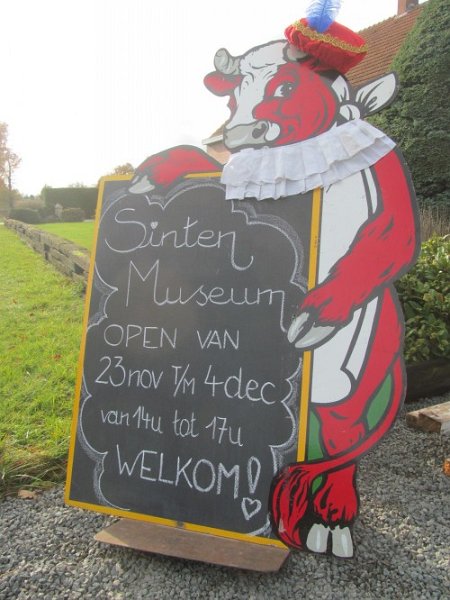 Sinten
Museum
OPEN VAN
23 nov T/M 4 dec
van 14u tot 17u
WELKOM!